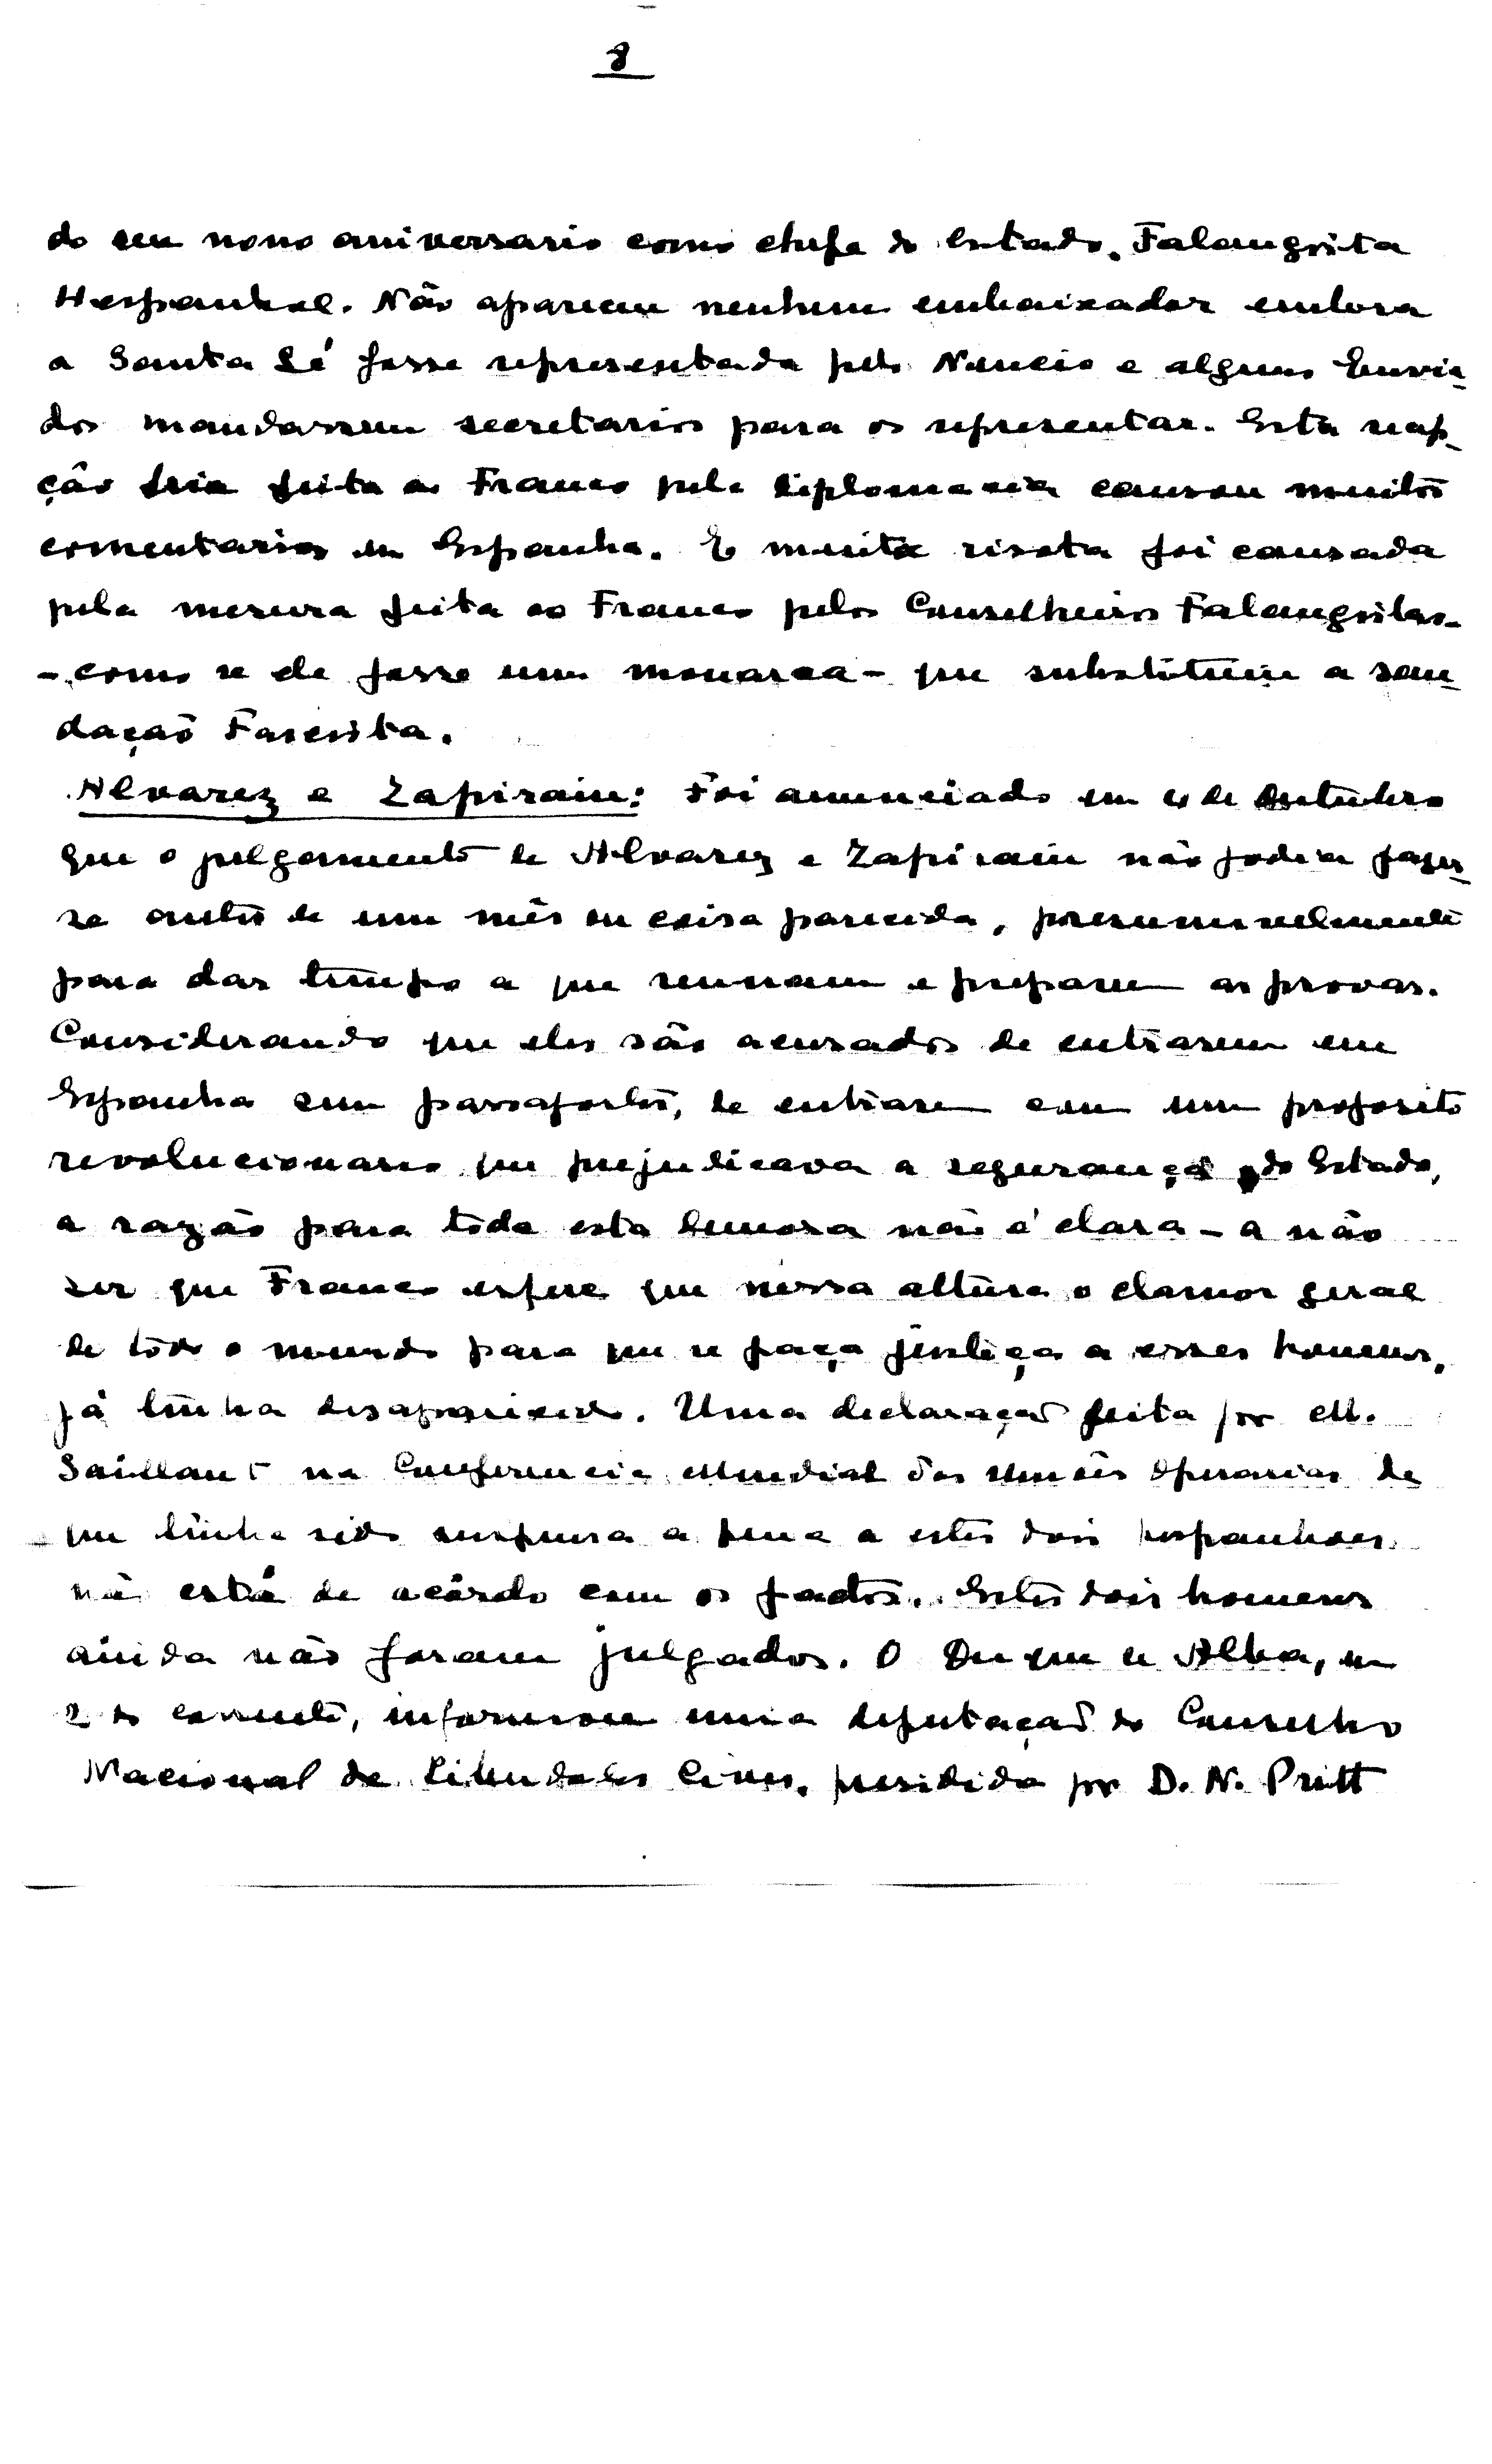 8
do seu nono aniversario como chefe do Estado. Falangista
Hespanhol. Não apareceu nenhum embaixador embora
a Santa Sé fosse representada pelo Nuncio e alguns Envia-
dos mandassem secretarios para os representar. Esta recep-
ção fria feita ao Franco pela diplomacia causou muitos
comentarios em Espanha. E muita risota foi causada
pela mesura feita ao Franco pelos Conselheiros Falangistas-
- como se ele fosse um monarca - que substituiu a sau-
dação Fascista.
Alvarez e Zapirain: Foi anunciado em 4 de Outubro
que o julgamento de Alvarez e Zapirain não podia fazer-
se antes de um mês ou coisa parecida, presumivelmente
para dar tempo a que reunam e preparem as provas.
Considerando que eles são acusados de entrarem em
Espanha sem passaportes, de entrarem com um proposito
revolucionario que prejudicava a segurança do Estado,
a razão para toda esta demora não é clara - a não
ser que Franco espere que nessa altura o clamor geral
de todo o mundo para que se faça justiça a esses homens,
já tinha desaparecido. Uma declaração feita por M.
Saillant na Conferencia Mundial das Uniões Operarias de
que tinha sido suspensa a pena a estes dois hespanhoes
não está de acôrdo com os factos. Estes dois homens
ainda não foram julgados. O Duque de Alba, em
2 do corrente, informou uma deputação do Conselho
Nacional de Liberdades Civis, presidida por D. N. Pritt